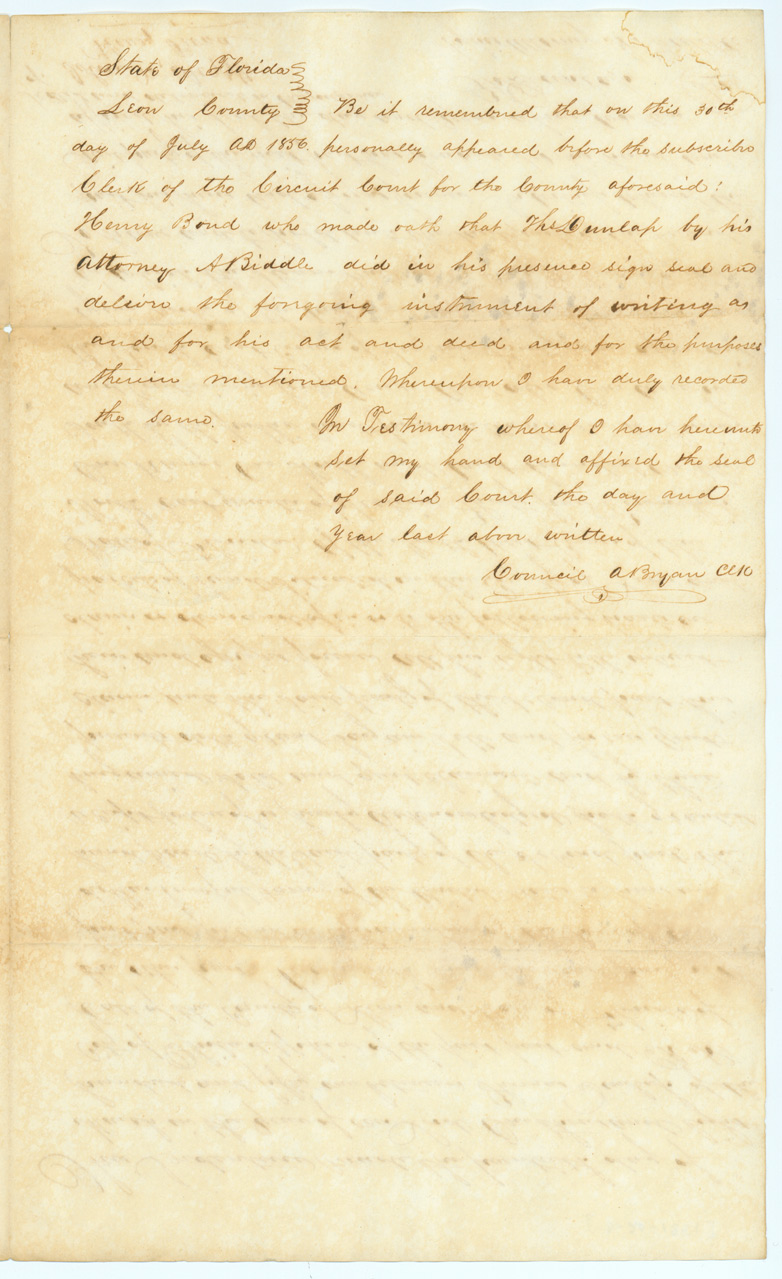 State of Florida
Leon County Be it remembered that on this 30th
day of July AD 1856. personally appeared before the subscriber
Clerk of the Circuit Court for the County aforesaid:
Henry Bond who made oath that Thos Dunlap by his
Attorney A Biddle did in his presence sign seal and
deliver the foregoing instrument of writing as
and for his act and deed and for the purposes
therein mentioned. Whereupon I have duly recorded
the same.
In Testimony whereof I have hereunto
set my hand and affixed the seal
of said Court. the day and
year last above written
Council A Bryan Clk